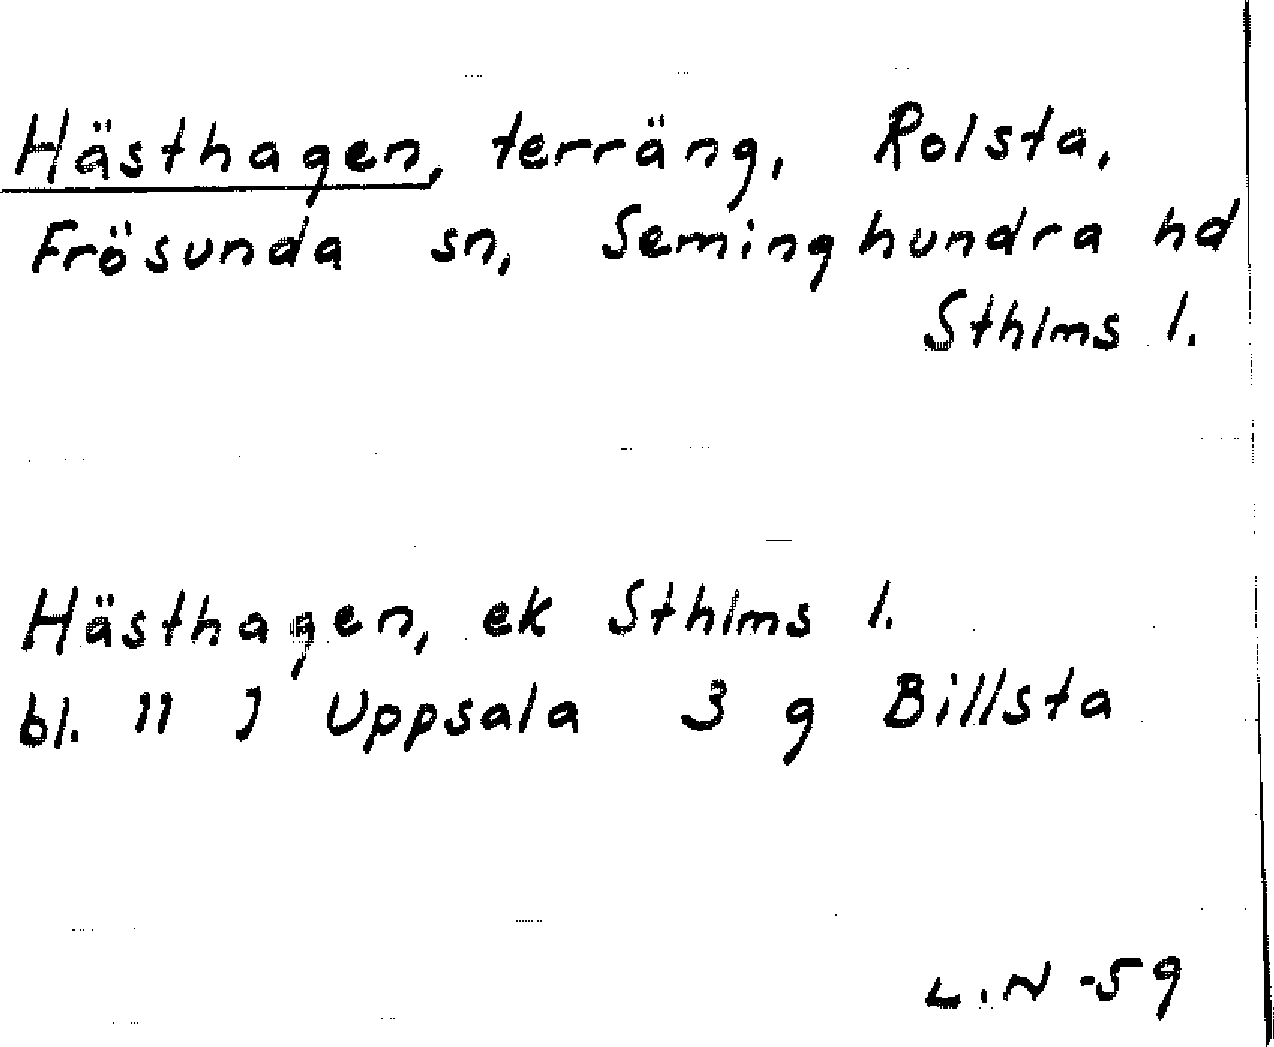 Hästhagen, terräng, Rolsta,
Frösunda sn, Seminghundra hd
Sthlms l.
Hästhagen, ek Sthlms l.
bl. 11 J Uppsala 3 g Billsta
L.N -59